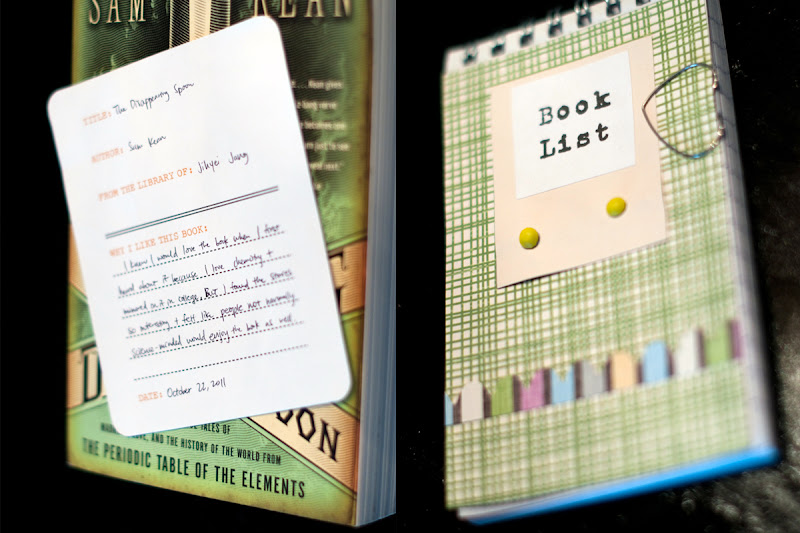 SAM KEAN
TITLE: The Disappearing Spoon
AUTHOR: Sam Kean
FROM THE LIBRARY OF: Jihyei Jang
WHY I LIKE THIS BOOK:
I knew I would love the book when I first
heard about it because I love chemistry +
minored in it in college. But I found the stories
so interesting + felt like people not normally
science-minded would enjoy the book as well.
DATE: October 22, 2011
TALES OF
AND THE HISTORY OF THE WORLD FROM
THE PERIODIC TABLE OF THE ELEMENTS
Book
List